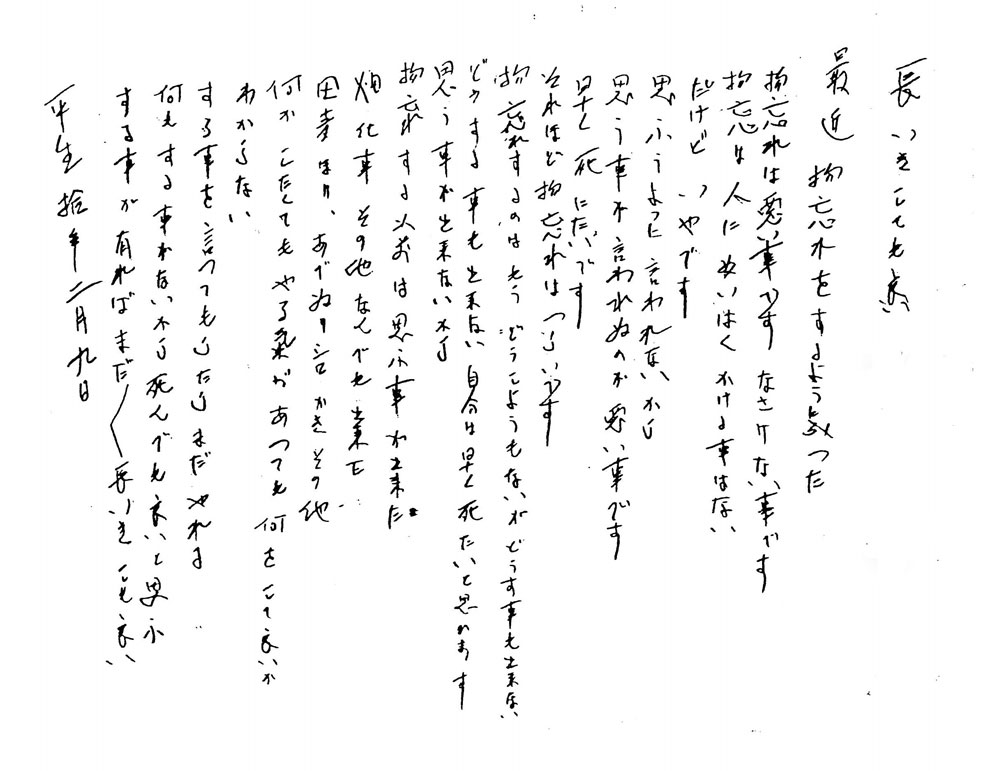 長いきしても良い
最近 物忘れをするよう気つた
物忘れは悪い事です なさけない事です
物忘は人にめいはくかける事はない
だけど いやです
思ふうように言われないから
思う事が言われぬのが悪い事です
早く死にたいです
それほど物忘れはつらいです
物忘れするのはもうどうしようもないがどうす事も出来ない
どうする事も出来ない 自分は早く死たいと思います
思う事が出来ないから
物忘れする以前は思ふ事が出来た
畑仕事 その他なんでも出来た
田麦ほり、あでぬり 代かき その他
何かしたくてもやる気があつても 何をして良いか
わからない
する事を言つてもらたらまだやれる
何もする事がないから死んでも良いと思ふ
する事が有ればまだ〱長いきしても良い
平生拾年二月九日